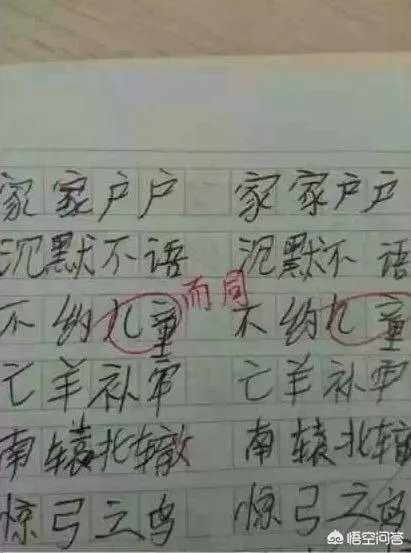 家家户户 家家户户
沉默不语 沉默不语
不约儿童 而同 不约儿童
亡羊补牢 亡羊补牢
南辕北辙 南辕北辙
惊弓之鸟 惊弓之鸟
悟空问答